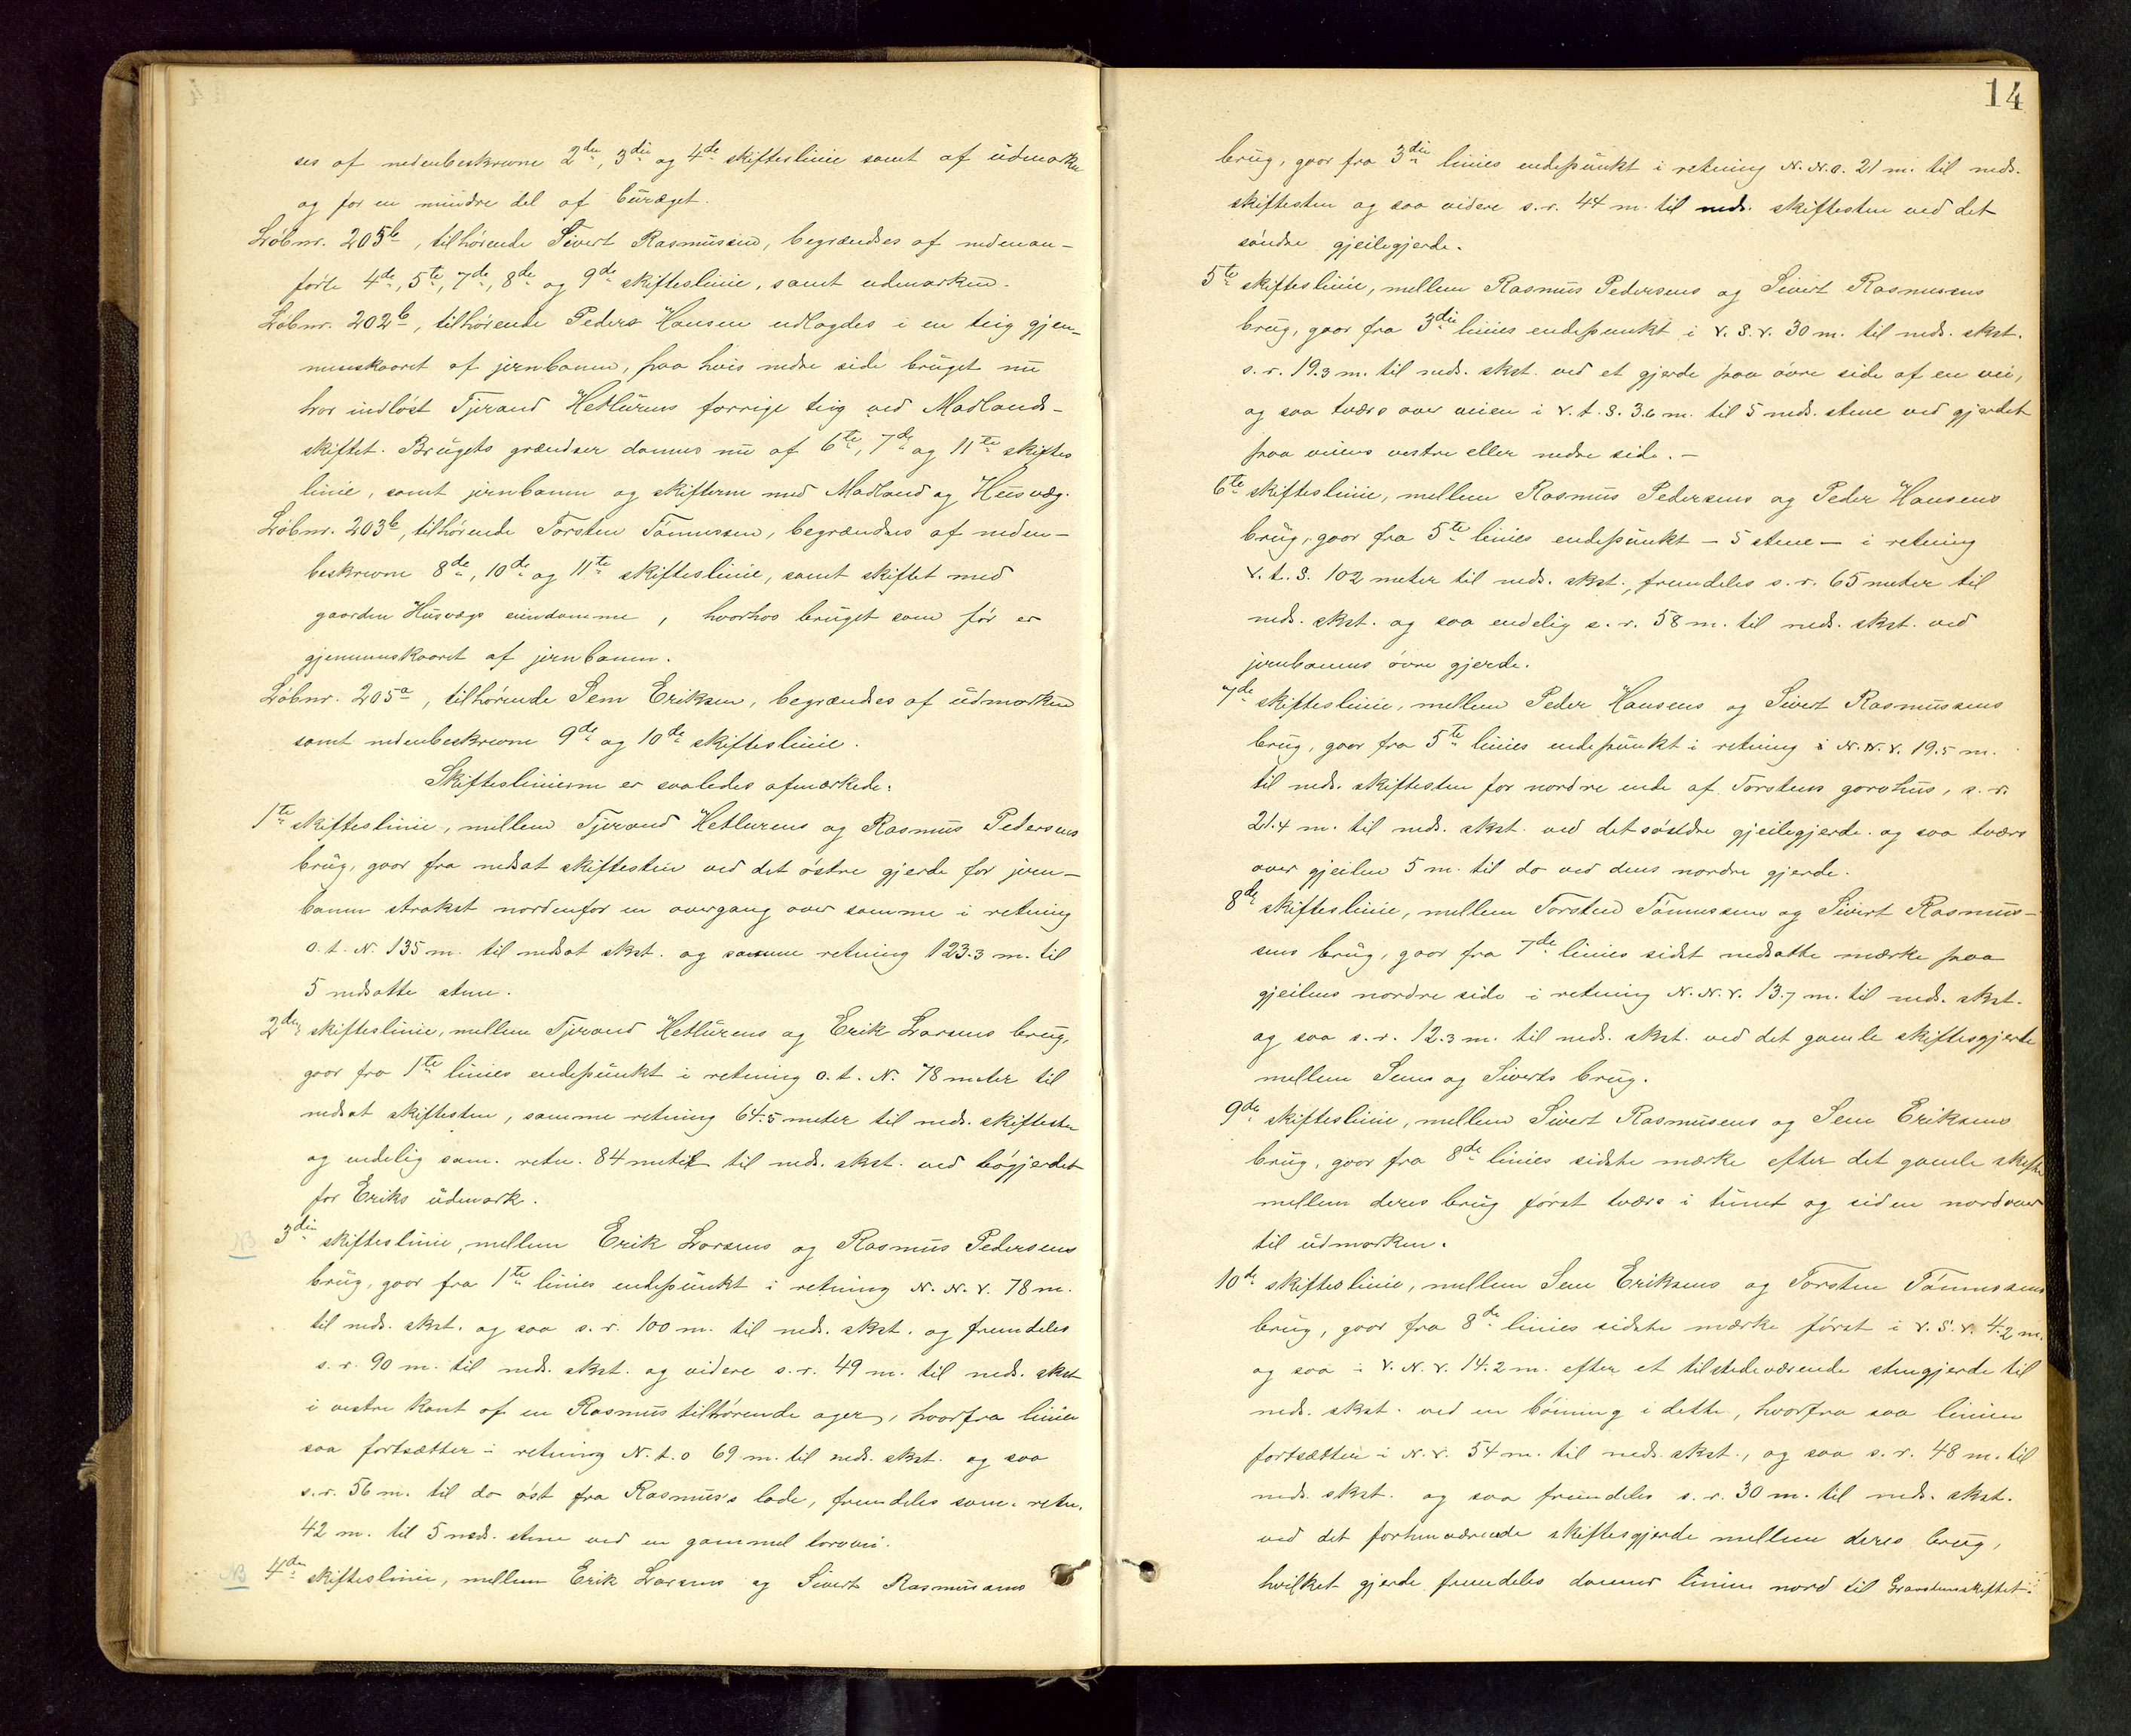 ses af nedenbeskrevne 2den, 3die og 4de skifteslinie samt af udmarken
og for en mindre del af buræget.
Løbnr. 205b, tilhørende Sivert Rasmussen, begrændses af nedenan-
førte 4de, 5te, 7de, 8de og 9de skifteslinie, samt udmarken.
Løbnr. 202b, tilhørende Peder Hansen udlagdes i en teig gjen-
nemskaaret af jernbanen, paa hvis nedre side bruget nu
har indløst Tjerand Hetlurens forrige teig ved Madlands-
skiftet. Brugets grændser dannes nu af 6te, 7de og 11te skiftes
linie, samt jernbanen og skifterne med Madland og Husvæg.
Løbnr. 203b, tilhørende Torsten Tønnessen, begrændses af neden-
beskrevne 8de, 10de og 11te skifteslinie, samt skiftet med
gaarden Husvægs eiendomme, hvorhos bruget som før er
gjennemskaaret af jernbanen.
Løbnr. 205a, tilhørende Sem Eriksen, begrændses af udmarken
samt nedenbeskrevne 9de og 10de skifteslinie.
Skifteslinierne er saaledes afmærkede:
1te skifteslinie, mellem Tjerand Hetlurens og Rasmus Pedersens
brug, gaar fra nedsat skiftesten ved det østre gjerde for jern-
banen strakst nordenfor en overgang over samme i retning
O. t. N. 135 m. til nedsat skst. og samme retning 123.3 m. til
5 nedsatte stene.
2den skifteslinie, mellem Tjerand Hetlurens og Erik Larsens brug,
gaar fra 1te linies endepunkt i retning O. t. N. 78 meter til
nedsat skiftesten, samme retning 64.5 meter til neds. skiftesten
og endelig sam. retn. 84 meter til neds. skst. ved bøgjerdet
for Eriks udmark.
NB 3die skifteslinie, mellem Erik Larsens og Rasmus Pedersens
brug, gaar fra 1te linies endepunkt i retning N. N. V. 78 m.
til neds. skst. og saa s. r. 100 m. til neds. skst. og fremdeles
s. r. 90 m. til neds. skst. og videre s. r. 49 m. til neds. skst
i vestre kant af en Rasmus tilhørende ager, hvorfra linien
saa fortsætter i retning N. t. O 69 m. til neds. skst. og saa
s. r. 56 m. til do øst fra Rasmus's lade, fremdeles sam. retn.
42 m. til 5 neds. stene ved en gammel torvvei.
NB 4de skifteslinie, mellem Erik Larsens og Sivert Rasmussens
14
brug, gaar fra 3die linies endepunkt i retning N. N. O. 21 m. til neds.
skiftesten og saa videre s. r. 44 m. til neds. skiftesten ved det
søndre gjeilegjerde.
5te skifteslinie, mellem Rasmus Pedersens og Sivert Rasmussens
brug, gaar fra 3die linies endepunkt i V. S. V. 30 m. til neds. skst.
s. r. 19.3 m. til neds. skst. ved et gjerde paa øvre side af en vei,
og saa tværs over veien i V. t. S. 3.6 m. til 5 neds. stene ved gjerdet
paa veiens vestre eller nedre side. –
6te skifteslinie, mellem Rasmus Pedersens og Peder Hansens
brug, gaar fra 5te linies endepunkt – 5 stene – i retning
V. t. S. 102 meter til neds. skst., fremdeles s. r. 65 meter til
neds. skst. og saa endelig s. r. 58 m. til neds. skst. ved
jernbanens øvre gjerde.
7de skifteslinie, mellem Peder Hansens og Sivert Rasmussens
brug, gaar fra 5te linies endepunkt i retning i N. N. V. 19.5 m.
til neds. skiftesten for nordre ende af Torstens gorohus, s. r.
21.4 m. til neds. skst. ved det søndre gjeilegjerde og saa tværs
over gjeilen 5 m. til do ved dens nordre gjerde.
8de skifteslinie, mellem Torsten Tønnessens og Sivert Rasmus-
sens brug, gaar fra 7de linies sidst nedsatte mærke paa
gjeilens nordre side i retning N. N. V. 13.7 m. til neds. skst.
og saa s. r. 12.3 m. til neds. skst. ved det gamle skiftesgjerde
mellem Sems og Siverts brug.
9de skifteslinie, mellem Sivert Rasmusens og Sem Eriksens
brug, gaar fra 8de linies sidste mærke efter det gamle skifte
mellem deres brug først tværs i tunet og siden nordover
til udmarken.
10de skifteslinie, mellem Sem Eriksens og Torsten Tønnessens
brug, gaar fra 8de linies sidste mærke først i V. S. V. 4.2 m.
og saa i V. N. V. 14.2 m. efter et tilstedeværende stengjerde til
neds. skst. ved en bøining i dette, hvorfra saa linien
fortsætter i N. V. 54 m. til neds. skst., og saa s. r. 48 m. til
neds. skst. og saa fremdeles s. r. 30 m. til neds. skst.
ved det forhenværende skiftesgjerde mellem deres brug,
hvilket gjerde fremdeles danner linien nord til